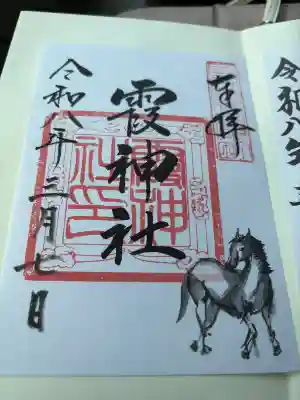 奉拝
霞神社
霞神社印
令和八年三月七日
令和八年三